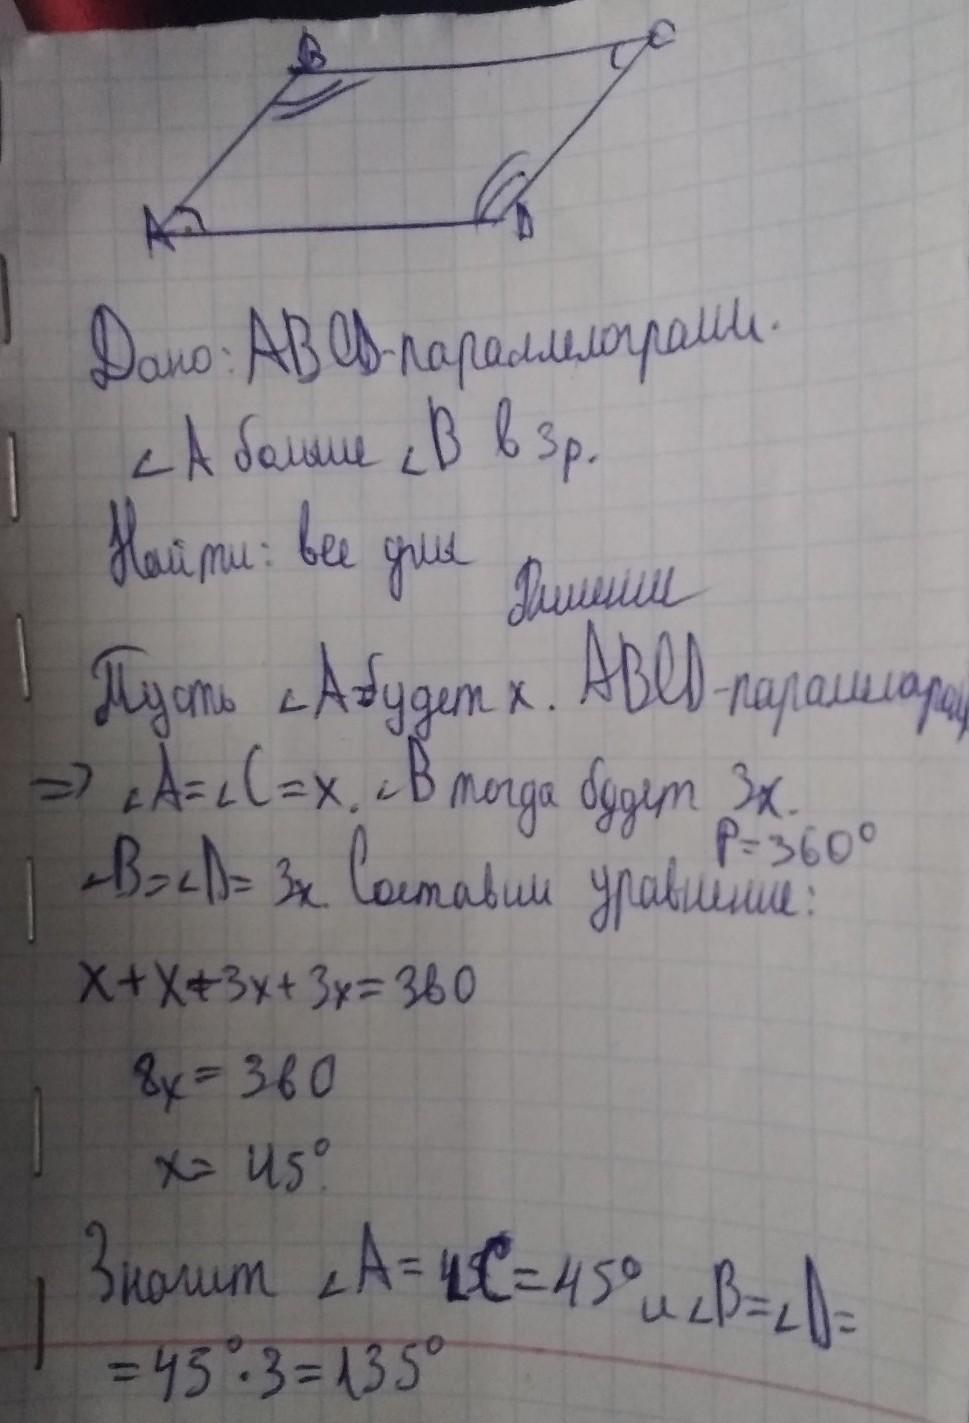 B
C
A
D
Дано: ABCD-параллелограмм.
∠A больше ∠B в 3р.
Найти: все углы
Решение
Пусть ∠A будет x. ABCD-параллелограмм
=> ∠A=∠C=x. ∠B тогда будет 3x.
P=360°
∠B=∠D= 3x. Составим уравнение:
x+x+3x+3x=360
8x=360
x= 45°.
Значит ∠A=∠C=45° и ∠B=∠D=
=45°·3=135°